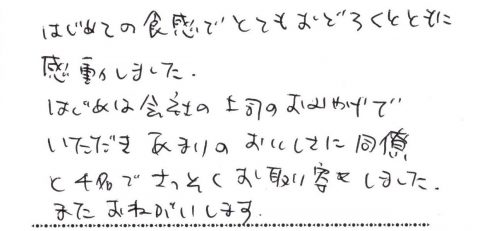 はじめての食感でとてもおどろくとともに
感動しました.
はじめは会社の上司のおみやげで
いただき あまりの おいしさに 同僚
と4名で さっそく お取り寄せしました.
またおねがいします.